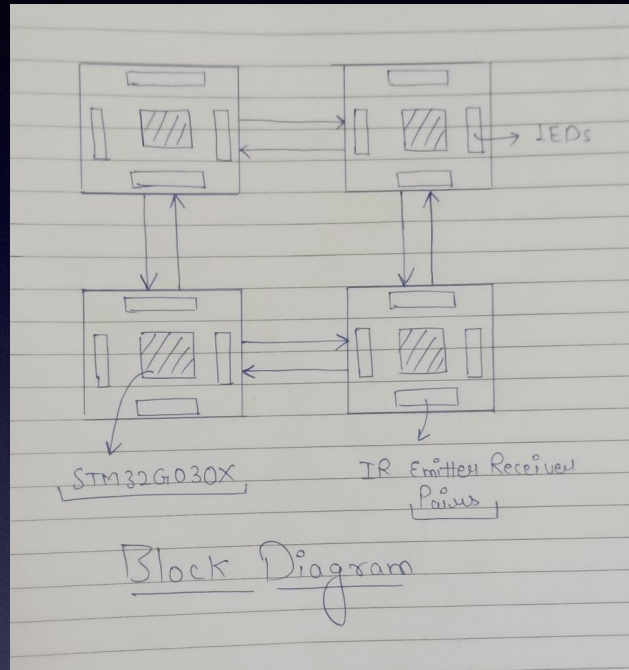 IEDs
STM32G030X
IR Emitter Receiver
Pairs
Block Diagram